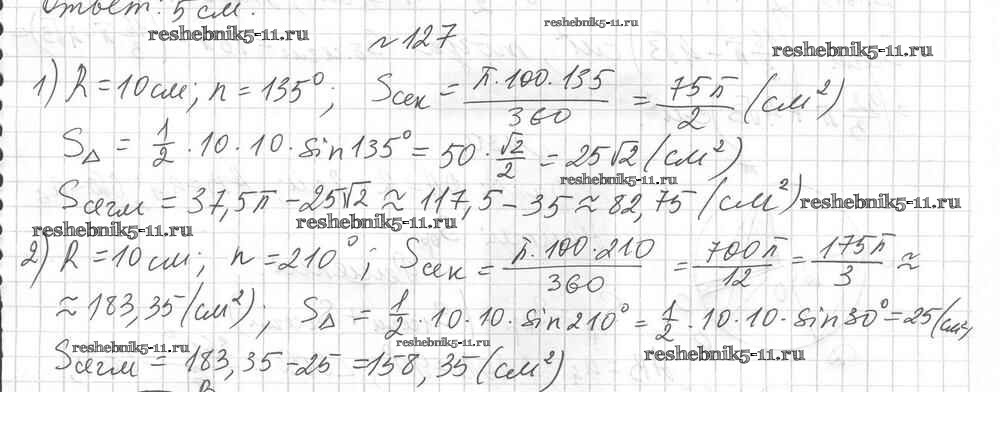 Ответ: 5 см.
resheb­nik5-11.ru
reshebnik5-11.ru
№127
reshebnik5-11.ru
1) R = 10 см; n = 135°; Sсек = π·100·135/360 = 75π/2 (см²)
S△ = 1/2 · 10 · 10 · sin 135° = 50 · √2/2 = 25√2 (см²)
reshebnik5-11.ru
Sсегм = 37,5π - 25√2 ≈ 117,5 - 35 ≈ 82,75 (см²)
reshebnik5-11.ru
reshebnik5-11.ru
reshebnik5-11.ru
2) R = 10 см; n = 210°; Sсек = π·100·210/360 = 700π/12 = 175π/3 ≈
≈ 183,35 (см²); S△ = 1/2 · 10 · 10 · sin 210° = 1/2 · 10 · 10 · sin 30° = 25 (см²)
reshebnik5-11.ru
reshebnik5-11.ru
reshebnik5-11.ru
Sсегм = 183,35 - 25 = 158,35 (см²)